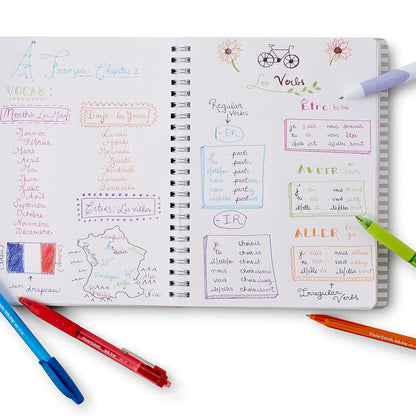 Français: Chapitre 1
VOCAB:
Months: Les Mois
Janvier
Février
Mars
Avril
Mai
Juin
Juillet
Août
Septembre
Octobre
Novembre
Décembre
Days: les Jours
Lundi
Mardi
Mercredi
Jeudi
Vendredi
Samedi
Dimanche
Cities: Les villes
un drapeau
Nice
Les Verbs
Regular Verbs
-ER
je parle
tu parles
nous parlons
-IR
je choisis
tu choisis
il/elle choisit
nous choisissons
vous choisissez
ils/elles choisissent
Être: to be
je suis nous sommes
tu es vous êtes
il/elle est ils/elles sont
AVOIR: to have
j'ai nous avons
tu as vous avez
il/elle a ils/elles ont
ALLER: to go
je vais nous allons
tu vas vous allez
il/elle va ils/elles vont
Irregular Verbs